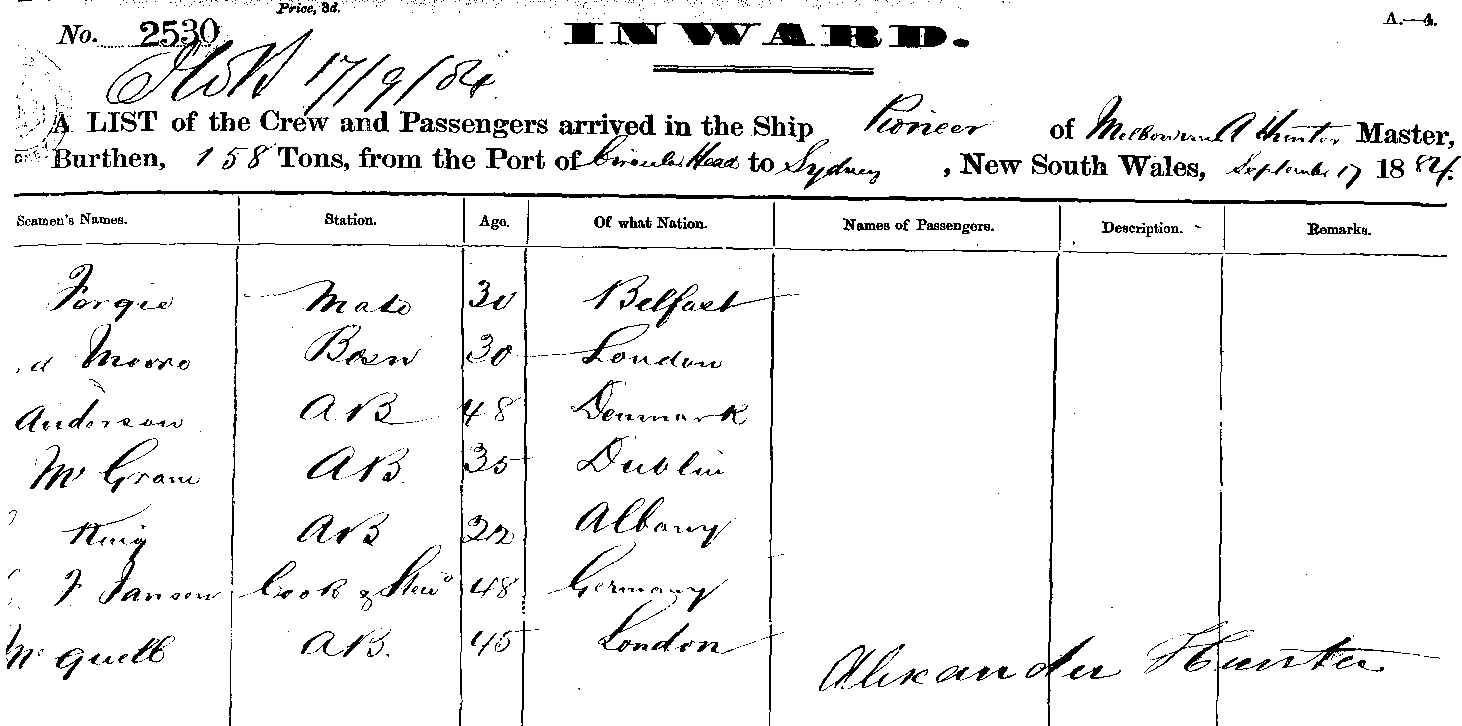 Price, 3d.
No. 2530 INWARD. A.—4.
17/9/84
A LIST of the Crew and Passengers arrived in the Ship Pioneer of Melbourne A Hunter Master,
Burthen, 158 Tons, from the Port of Circular Head to Sydney, New South Wales, September 17 1884.
Seamen's Names. Station. Age. Of what Nation. Names of Passengers. Description. Remarks.
Forgie Mate 30 Belfast
d Moore Bosn 30 London
Anderson AB 48 Denmark
Mc Grane AB 35 Dublin
King AB 22 Albany
F Jansen Cook & Stewd 48 Germany
Mc Quell AB. 45 London
Alexander Hunter